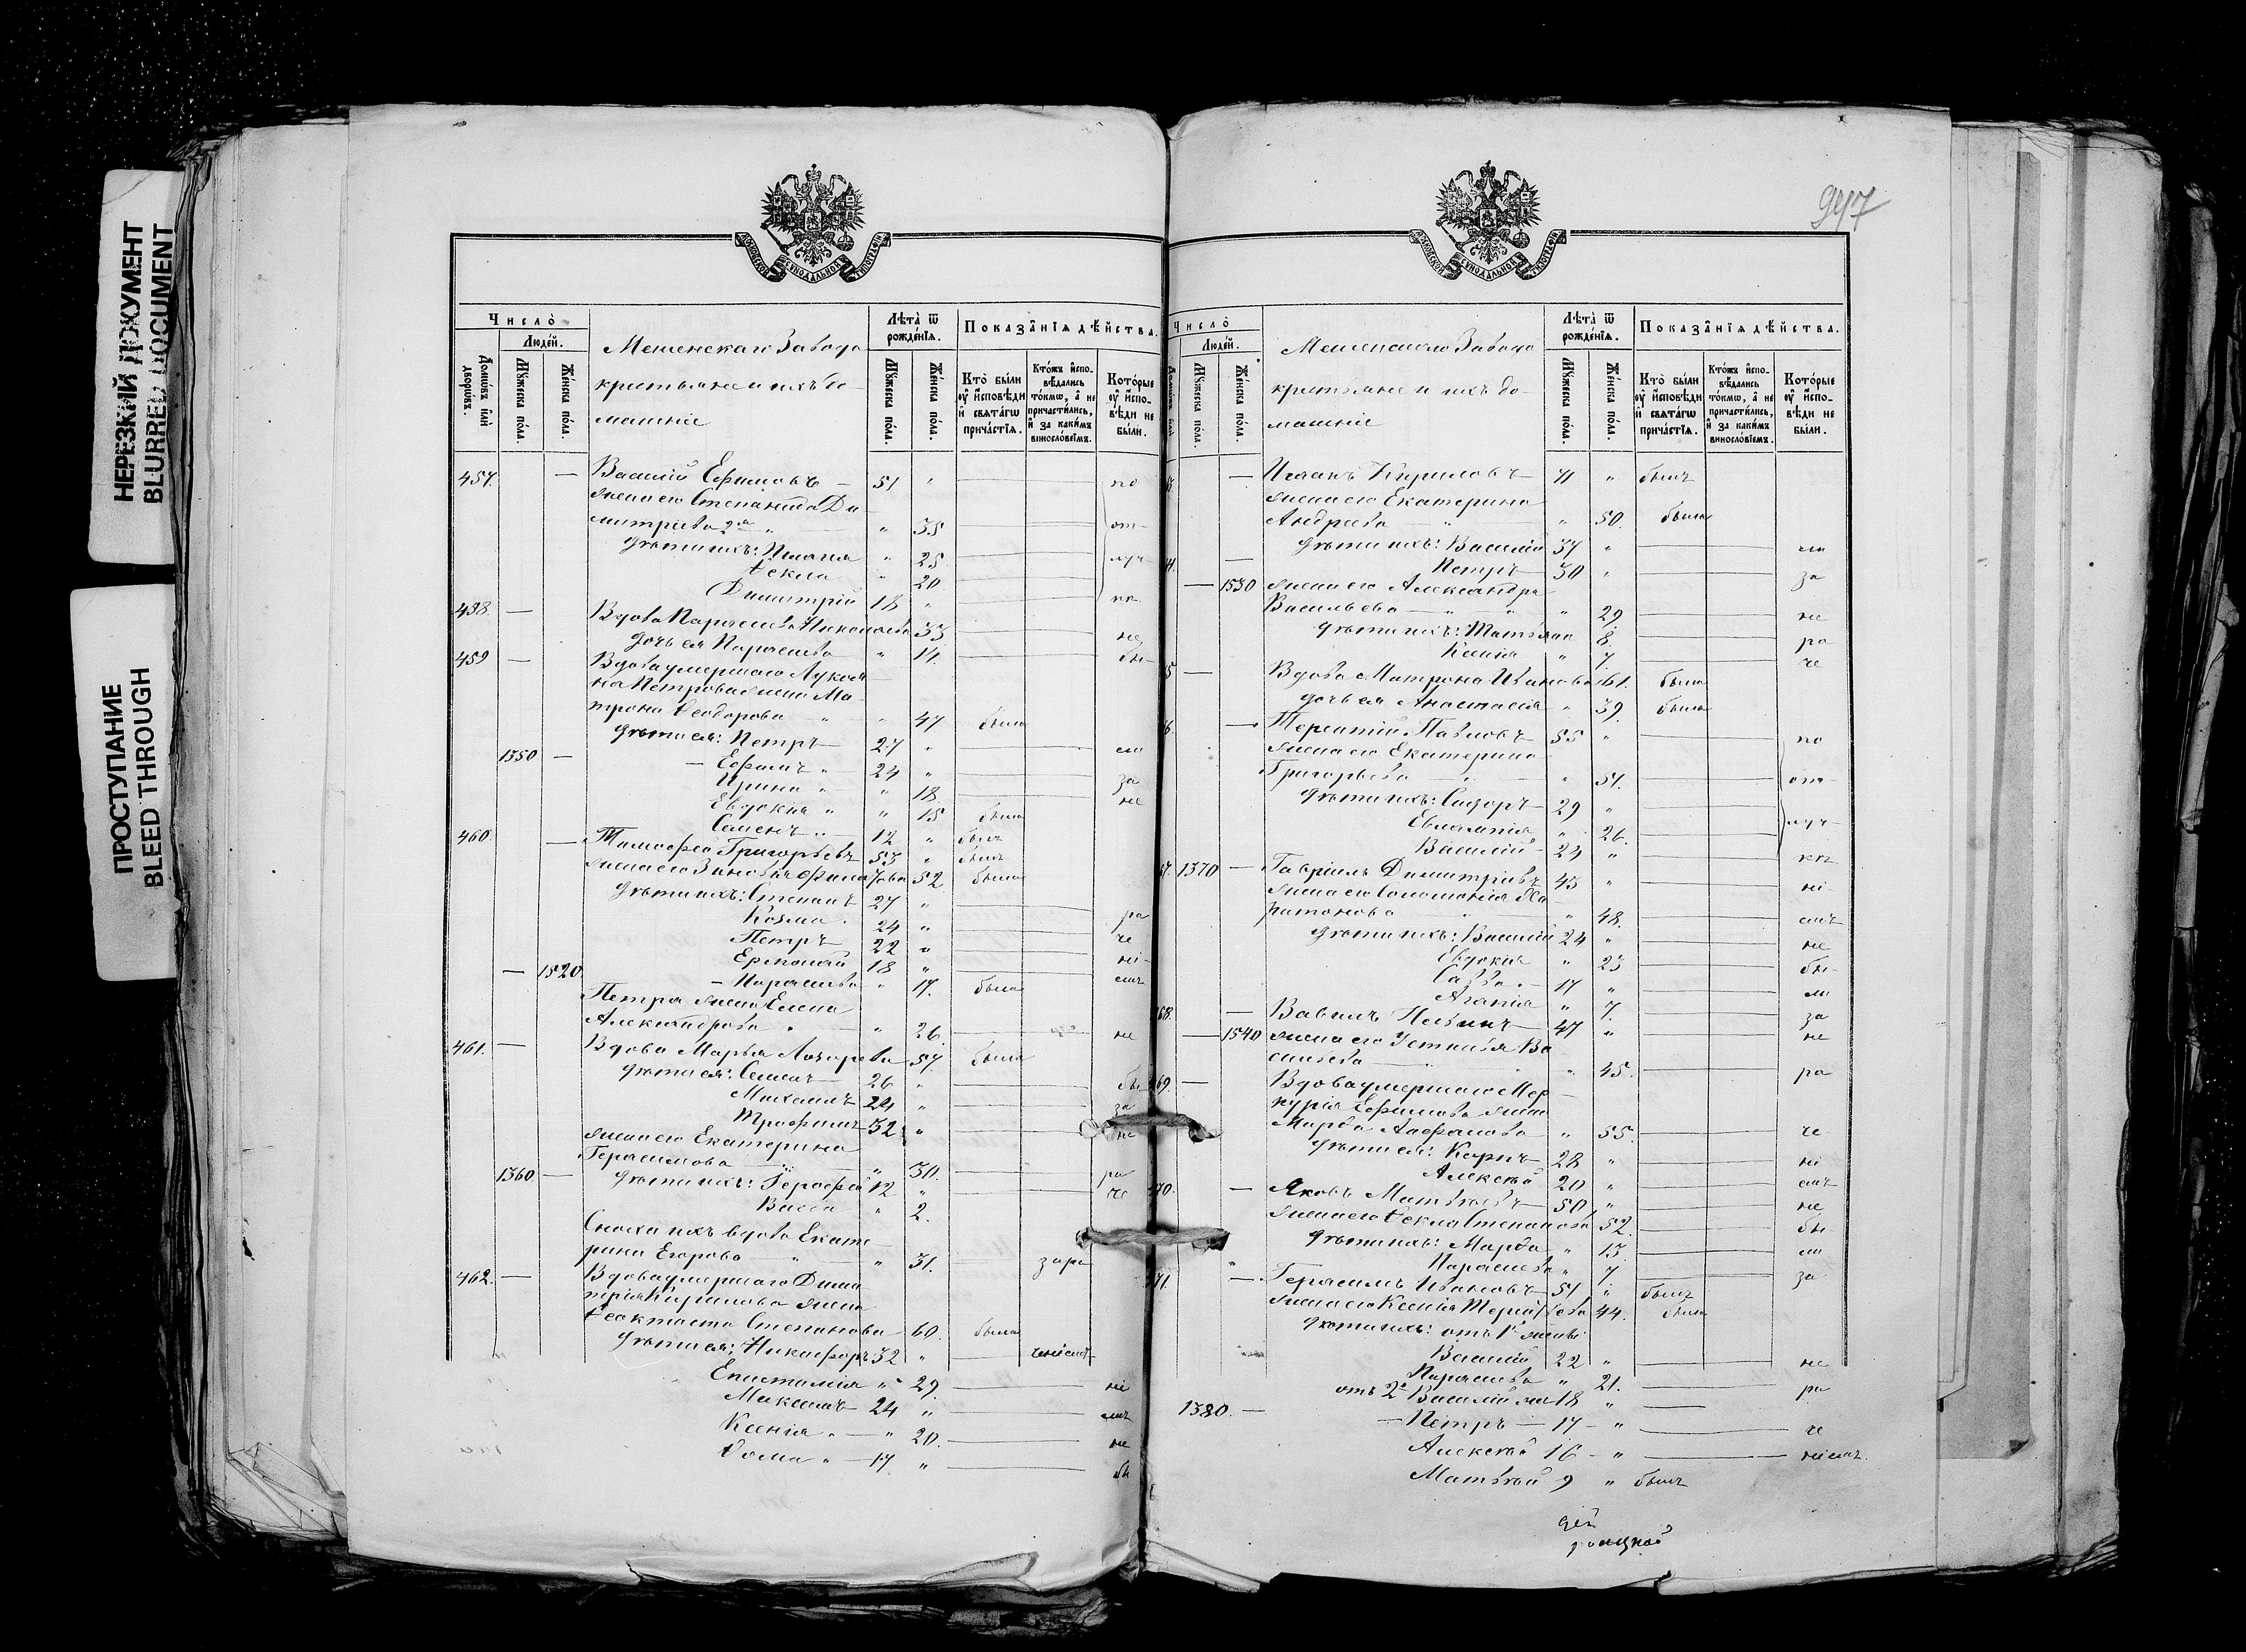 НЕРЕЗКИЙ ДОКУМЕНТ
BLURRED DOCUMENT
ПРОСТУПАНИЕ
BLEED THROUGH
МОСКОВСКОЙ СѴНОДАЛЬНОЙ ТИПОГРАФІИ
Число̀
Люде́й.
Домѡ́въ и҆лѝ дворѡ́въ.
Мꙋ́жеска по́ла.
Же́нска по́ла.
Завода
крестьяне и ихъ до-
машніе
Лѣта̀ ѿ рожде́нїѧ.
Мꙋ́жеска по́ла.
Же́нска по́ла.
Показа̑нїѧ дѣ́йства.
Кто̀ бы́ли ᲂу҆ и҆сповѣ́ди и҆ свѧта́гѡ прича́стїѧ.
Кто́жъ и҆сповѣ́дались то́кмѡ, а҆ не причасти́лись, и҆ за каки́мъ винослѡ́вїемъ.
Кото́рые ᲂу҆ и҆сповѣ́ди не бы́ли.
457. — Василій Ефимовъ — 51 " по
жена его Степанида Ди
митріева 2я " " 35 от-
дѣти ихъ: Пелагія " 25 луч
Ѳекла " 20
Димитрій 18 " кѣ
458. — Вдова Параскева Николаева 33 не
дочь ея Параскева " 14. бы-
459 — Вдова умершаго Лукія
на Петрова жена Ма
трона Ѳеодорова " " 47 была
дѣти ея: Петръ — 27 " ли
1350 — Ефимъ " 24 " за
Ирина " " 18 не
Евдокія " " 15 была
Семенъ " 12 " былъ
460. — Тимофей Григорьевъ 53 " былъ
жена его Зиновія 52 была
дѣти ихъ: Степанъ 27 "
Козма 24 " ра
Петръ 22 " че
Ермолай 18 " ні-
— 1520 — Параскева " 17. была емъ
Петра жена Елена
Александрова " " 26. не
461. — Вдова Марѳа Лазарева 57 была
дѣти ея: Семенъ 26 " бы
Михаилъ 24 " за
Трофимъ 32 " не
жена его Екатерина
Герасимова " 30. ра
1360 — дѣти ихъ: Герофей 12 " че
Васса " 2.
Сноха ихъ вдова Екате
рина Егорова " " 31. за ра
462. — Вдова умершаго Дими
трія Кирилова жена
Ѳеоктиста Степанова 60. была
дѣти ея: Никифоръ 32 " ченіемъ
Епистимія " 29. ні
Максимъ 24 " емъ
Ксенія " — " 20. не
Ѳома " — 17. " бы
947
МОСКОВСКОЙ СѴНОДАЛЬНОЙ ТИПОГРАФІИ
Число̀
Люде́й.
Мꙋ́жеска по́ла.
Же́нска по́ла.
Завода
крестьяне и ихъ до-
машніе
Лѣта̀ ѿ рожде́нїѧ.
Мꙋ́жеска по́ла.
Же́нска по́ла.
Показа̑нїѧ дѣ́йства.
Кто̀ бы́ли ᲂу҆ и҆сповѣ́ди и҆ свѧта́гѡ прича́стїѧ.
Кто́жъ и҆сповѣ́дались то́кмѡ, а҆ не причасти́лись, и҆ за каки́мъ винослѡ́вїемъ.
Кото́рые ᲂу҆ и҆сповѣ́ди не бы́ли.
3. — Кириловъ — 71 " былъ
жена его Екатерина
Андреева " " 50. была
дѣти ихъ: Василій 37 " ли
4. — Петръ — 30 " за
— 1530 жена его Александра
Васильева — " " 29 не
дѣти ихъ: Татіана 8. ра
Ксенія " 7. че
5 — Вдова Матрона Иванова 61. была
дочь ея Анастасія " 39. была
6. — Терентій Павловъ 55 " по
жена его Екатерина
Григорьева — " " 51. от-
дѣти ихъ: Сидоръ — 29 "
Евлампія " 26. луч
Василій 24 " кѣ
67. 1370 — Гавріилъ Димитріевъ 45 " ні-
жена его Соломонія Ха
ритонова " " 48. емъ
дѣти ихъ: Василій 24 " не
Евдокія " 23 бы-
Савва — 17 " ли
Агапія " 7. за
68. — Вавилъ 47 " не
— 1540 жена его Устинія Ва
сильева — " " 45. ра
69. — Вдова умершаго Мер-
курія Ефимова жена
Марѳа " 55. че
дѣти ея: Карпъ 28 " ні
Алексѣй 20 " емъ
470. — Яковъ Матвѣевъ 50 " не
жена его Ѳекла Степанова 52. бы
дѣти ихъ: Марѳа " 13 ли
Параскева " 7. за
471. — Герасимъ Ивановъ 51 " былъ
жена его Ксенія 44. была
дѣти ихъ: отъ 1й жены
Василій 22 " не
Параскева " 21. ра
отъ 2й Василій 18 "
1380. — Петръ — 17 — " че
Алексѣй 16 — " ніемъ.
Матвѣй 9 " былъ